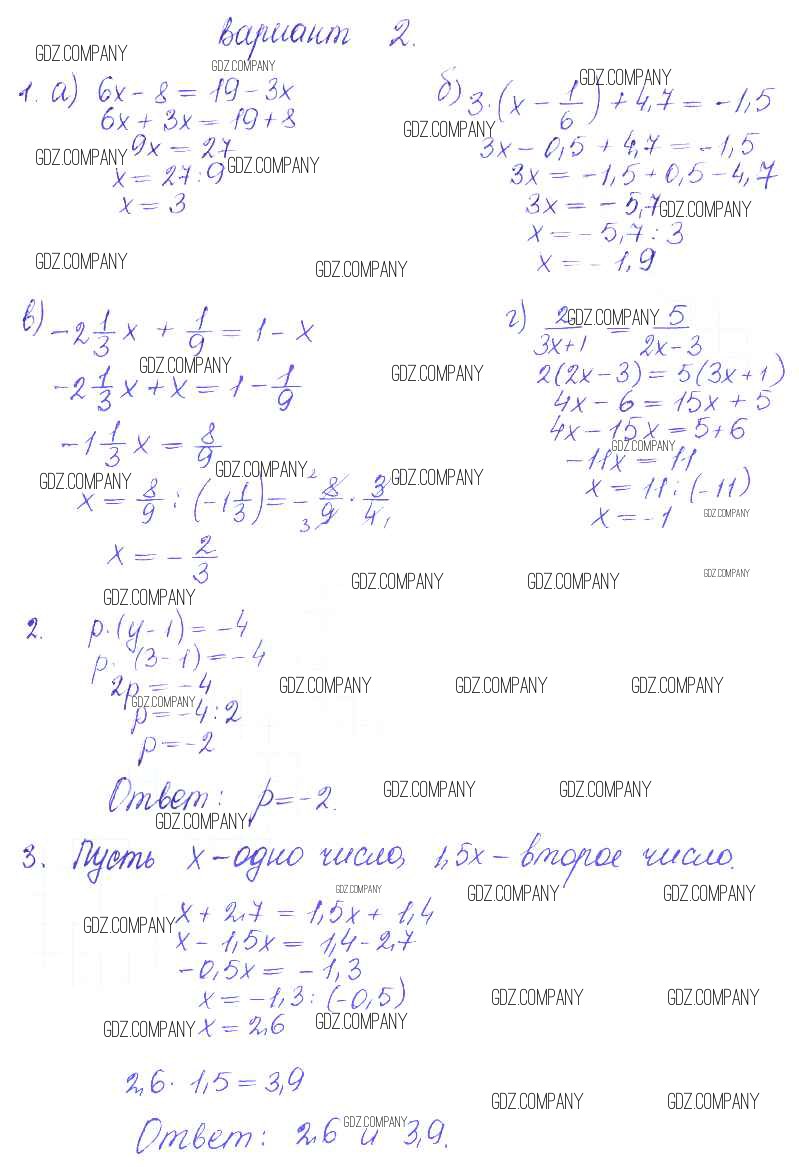 вариант 2.
1. а) 6x - 8 = 19 - 3x
6x + 3x = 19 + 8
9x = 27
x = 27 : 9
x = 3
б) 3·(x - 1/6) + 4,7 = -1,5
3x - 0,5 + 4,7 = -1,5
3x = -1,5 + 0,5 - 4,7
3x = -5,7
x = -5,7 : 3
x = -1,9
в) -2 1/3 x + 1/9 = 1 - x
-2 1/3 x + x = 1 - 1/9
-1 1/3 x = 8/9
x = 8/9 : (-1 1/3) = - 8/9 · 3/4
x = - 2/3
г) 2/(3x+1) = 5/(2x-3)
2(2x-3) = 5(3x+1)
4x - 6 = 15x + 5
4x - 15x = 5+6
-11x = 11
x = 11 : (-11)
x = -1
2. p·(y-1) = -4
p·(3-1) = -4
2p = -4
p = -4:2
p = -2
Ответ: p = -2.
3. Пусть x - одно число, 1,5x - второе число.
x + 2,7 = 1,5x + 1,4
x - 1,5x = 1,4 - 2,7
-0,5x = -1,3
x = -1,3 : (-0,5)
x = 2,6
2,6 · 1,5 = 3,9
Ответ: 2,6 и 3,9.
GDZ.COMPANY